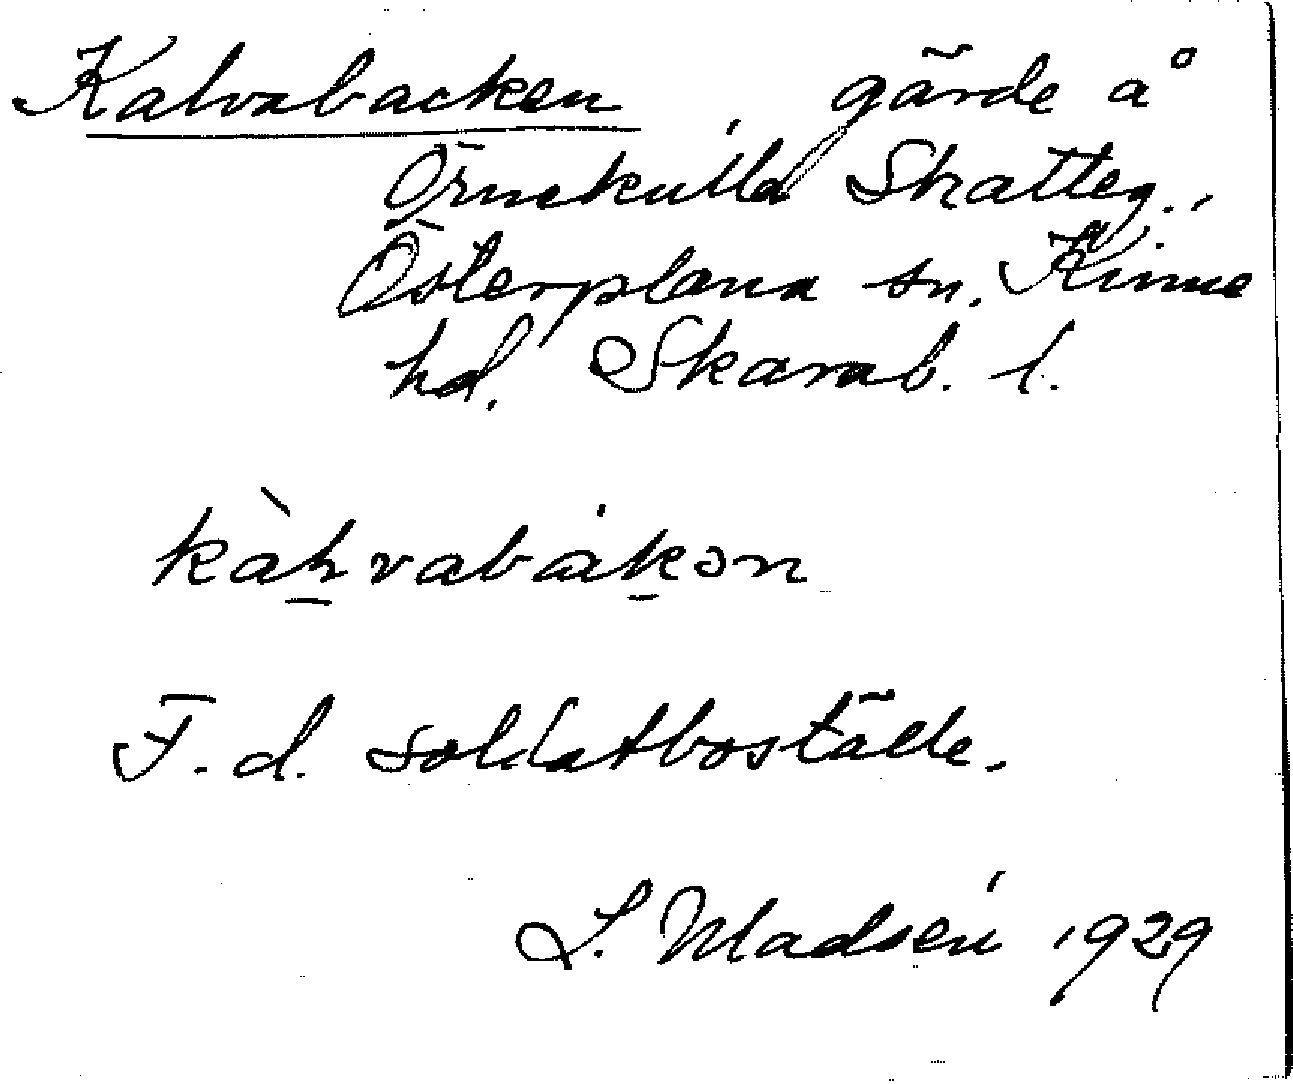 Kalvabacken gärde å
Örnekulla Skatteg.,
Österplana sn. Kinne
hd. Skarab. l.
kàḻvabákən
F. d. soldatboställe.
L. Madsén 1929